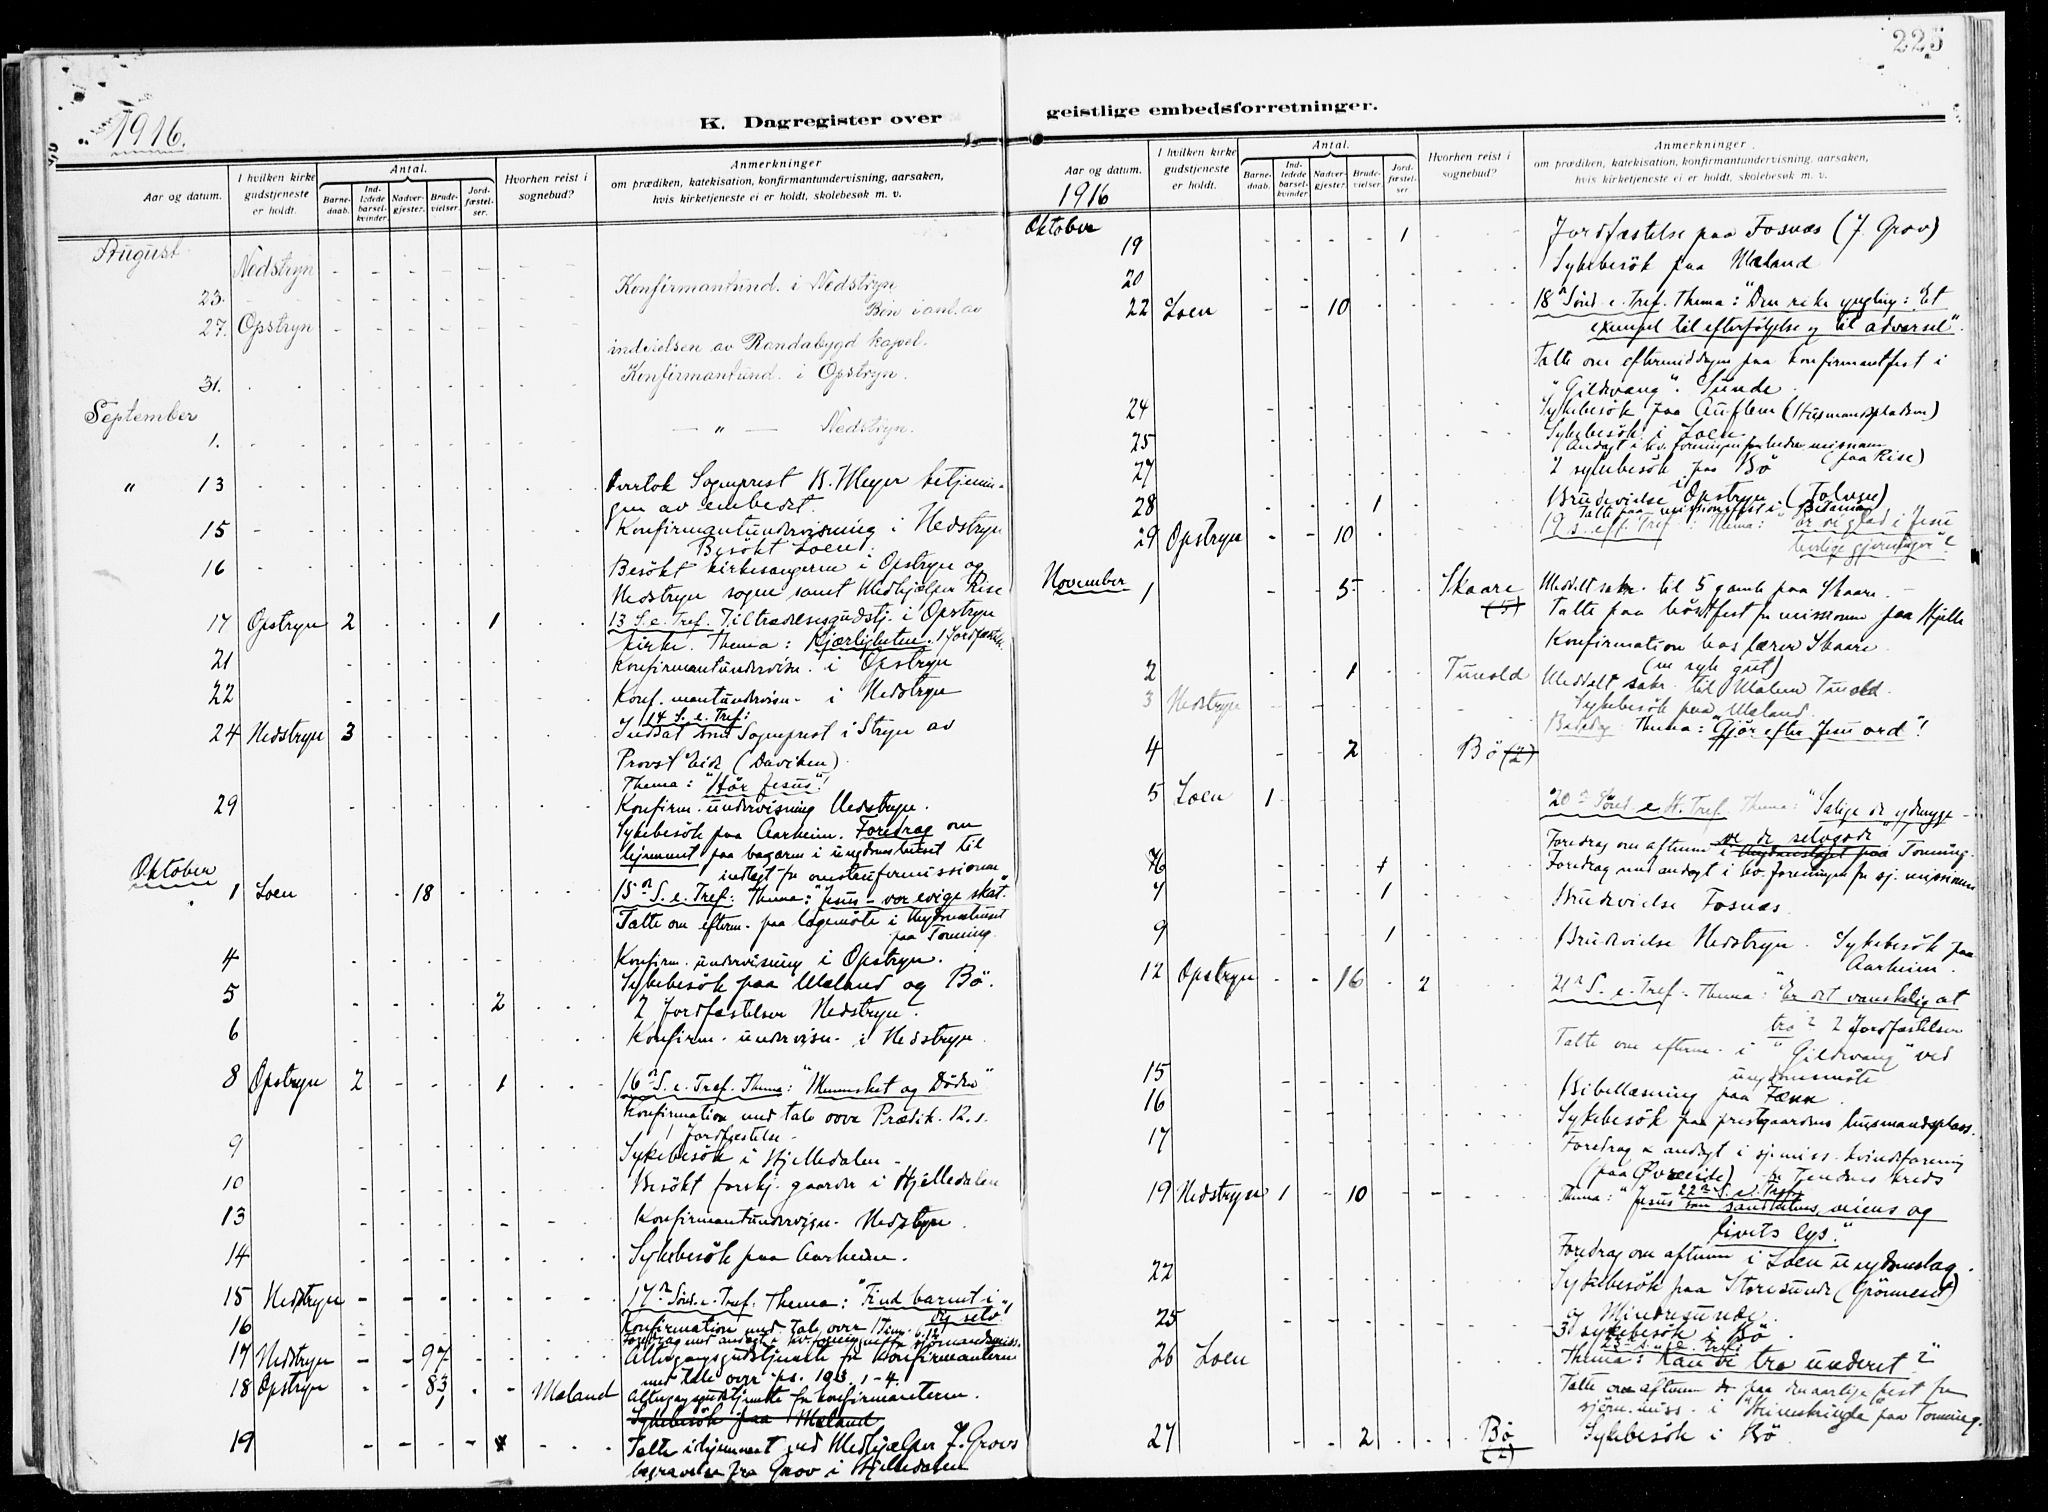 225
1916.
K. Dagregister over
Aar og datum.
I hvilken kirke gudstjeneste er holdt.
Antal.
Barnedaab.
Indledede barselkvinder.
Nadvergjester.
Brudevielser.
Jordfæstelser.
Hvorhen reist i sognebud?
Anmerkninger
om prædiken, katekisation, konfirmantundervisning, aarsaken,
hvis kirketjeneste ei er holdt, skolebesøk m. v.
August
23. Nedstryn Konfirmantund. i Nedstryn
27. Opstryn Bøn i anl. av
indvielsen av Randabygd kapel.
31. Konfirmantund. i Opstryn.
September
1. — " — Nedstryn.
" 13 Overtok Sogneprest B. Meyer betjenin-
gen av embedet.
15 Konfirmantundervisning i Nedstryn
Besökt Loen.
16 Besökt kirkesangerne i Opstryn og
Nedstryn sogne samt Medhjælper Rise
17 Opstryn 2 1 13 S. e. Tref. Tiltrædelsesgudstj. i Opstryn
kirke. Thema: Kjærligheten. 1 Jordfæstelse
21 Konfirmantundervisn. i Opstryn
22 Konf.mantundervisn. i Nedstryn
14 S. e. Tref:
24 Nedstryn 3 Indsat som Sogneprest i Stryn av
Provst Eide (Daviken)
Thema: "Hör Jesus"!
29 Konfirm. undervisning Nedstryn.
Sykebesök paa Aarheim. Foredrag om
hjemmet paa bazaren i ungdomshuset til
indtægt for
Oktober
1 Loen 18 15n S. e. Tref: Thema: "Jesus – vor evige skat."
Talte om efterm. paa logemöte i Ungdomshuset
paa Tonning.
4 Konfirm. undervisning i Opstryn.
5 2 Sykebesök paa Mæland og Bö.
2 Jordfæstelser Nedstryn.
6 Konfirm. undervisn. i Nedstryn.
8 Opstryn 2 1 16n S. e. Tref. Thema: "Mennesket og Döden"
Konfirmation med tale over Prædik. 12.1.
1 Jordfæstelse.
9 Sykebesök i Hjelledalen
10 Besökt forskj. gaarde i Hjelledalen
13 Konfirmantundervisn. Nedstryn.
14 Sykebesök paa Aarheim.
15 Nedstryn 17n Sönd. e. Tref. Thema: "Find barnet i
dig selv"!
16 Konfirmation med tale over 1 Tim. 6.12
Foredrag med andagt i kv.foreningen
17 Nedstryn 97 Altergangsgudstjeneste for konfirmanterne
med tale over ps. 103. 1-4.
18 Opstryn 83 Mæland Altergangsgudstjeneste for konfirmanterne.
Sykebesök paa Mæland
19 Talte i hjemmet ved Medhjælper J. Grovs
begravelse fra Grov i Hjelledalen
geistlige embedsforretninger.
Aar og datum.
1916
I hvilken kirke gudstjeneste er holdt.
Antal.
Barnedaab.
Indledede barselkvinder.
Nadvergjester.
Brudevielser.
Jordfæstelser.
Hvorhen reist i sognebud?
Anmerkninger
om prædiken, katekisation, konfirmantundervisning, aarsaken,
hvis kirketjeneste ei er holdt, skolebesøk m. v.
Oktober
19 1 Jordfæstelse paa Fosnæs (J. Grov)
20 Sykebesök paa Mæland
22 Loen 10 18n Sönd. e. Tref. Thema: "Den rike yngling: Et
exempel til efterfölgelse og til advarsel".
Talte om eftermiddagen paa konfirmantfest i
"Gildevang". Sunde.
24 Sykebesök paa Auflem (Husmandspladsen)
25 Sykebesök i Loen.
Andagt i kv. foreningen for hedn. missionen
(paa Rise)
27 2 sykebesök paa Bö
28 1 Brudevielse i Opstryn. (Tolven)
Talte paa missionsfest i
29 Opstryn 10 19 S. eft. Tref: Thema: "Er vi glad i Jesu
herlige gjerninger"?
November
1 5 Skaare (5) Meddelt sakr. til 5 gamle paa Skaare.
Talte paa höstfest for missionen paa Hjelle
Konfirmation hos lærer Skaare.
(en syk gut)
2 1 Tunold Meddelt sakr. til Malene Tunold.
3 Nedstryn Sykebesök paa Mæland.
Bededag. Thema: "Gjör efter Jesu ord"!
4 2 Bö (2)
5 Loen 1 20n Sönd. e. H. Tref. Thema: "Salige de ydmyge –
ve de selvgode"!
Foredrag om aftenen i Ungdomslaget paa Tonning.
6 Foredrag med andagt i kv. foreningen for sj. missionen
7 1 Brudevielse Fosnæs.
9 1 Brudevielse Nedstryn. Sykebesök paa
Aarheim.
12 Opstryn 16 2 21n S. e. Tref. Thema: "Er det vanskelig at
tro"? 2 Jordfæstelser
Talte om efterm. i "Gildevang" ved
ungdomsmöte
15 Bibellæsning paa Fænn.
16 Sykebesök paa prestgaardens husmandsplass.
17 Foredrag & andagt i sj.miss. kvindeforening
(paa Övreeide) for Tendnes kreds
22n S. e. Tref.
19 Nedstryn 1 10 Thema: "Jesus som sandhetens, veiens og
livets lys."
Foredrag om aftenen i Loen ungdomslag.
22 Sykebesök paa Storesunde (Grönneset)
og Mindresunde.
25 3 sykebesök i Bö
23n S. e. Tref:
26 Loen Thema: "Kan vi tro underet"?
Talte om aftenen paa den aarlige fest for
sjöm.miss. i "Heimskringla" paa Tonning.
27 2 Bö (2) Sykebesök i Bö